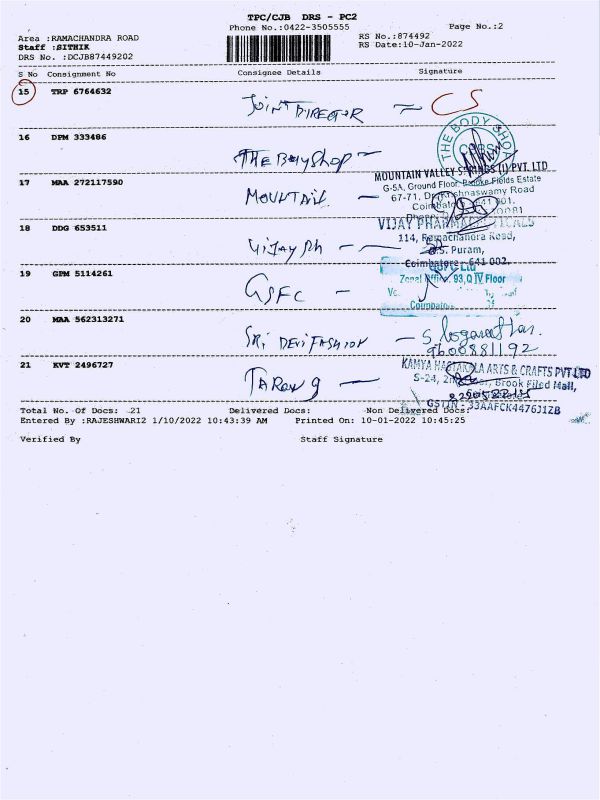 TPC/CJB DRS - PC2
Phone No.:0422-3505555
Page No.:2
Area :RAMACHANDRA ROAD
RS No.:874492
Staff :SITHIK
RS Date:10-Jan-2022
DRS No. :DCJB87449202
S No Consignment No Consignee Details Signature
15 TRP 6764632
JOINT DIRECTOR CS
16 DPM 333486
THE BODY SHOP
THE BODY SHOP
17 MAA 272117590
MOUNTAIN VALLEY SPRINGS (I) PVT. LTD
G-5A, Ground Floor, Fields Estate
MOUNTAIL
67-71, Road
18 DDG 653511
VIJAY PHARMACEUTICALS
114, Ramachandra Road,
VIJAY Ph
R.S. Puram,
Coimbatore - 641 002.
19 GPM 5114261
GSFC Ltd
Zonal Office, 93,Q IV Floor
GSFC
Coimbatore
20 MAA 562313271
SRI DEVI FASHION
9600881192
21 KVT 2496727
KAMYA HASTAKALA ARTS & CRAFTS PVT LTD
S-24, Brook Filed Mall,
GSTIN - 33AAFCK4476J1ZB
Total No. Of Docs: 21 Delivered Docs: Non Delivered Docs:
Entered By :RAJESHWARI2 1/10/2022 10:43:39 AM Printed On: 10-01-2022 10:45:25
Verified By Staff Signature